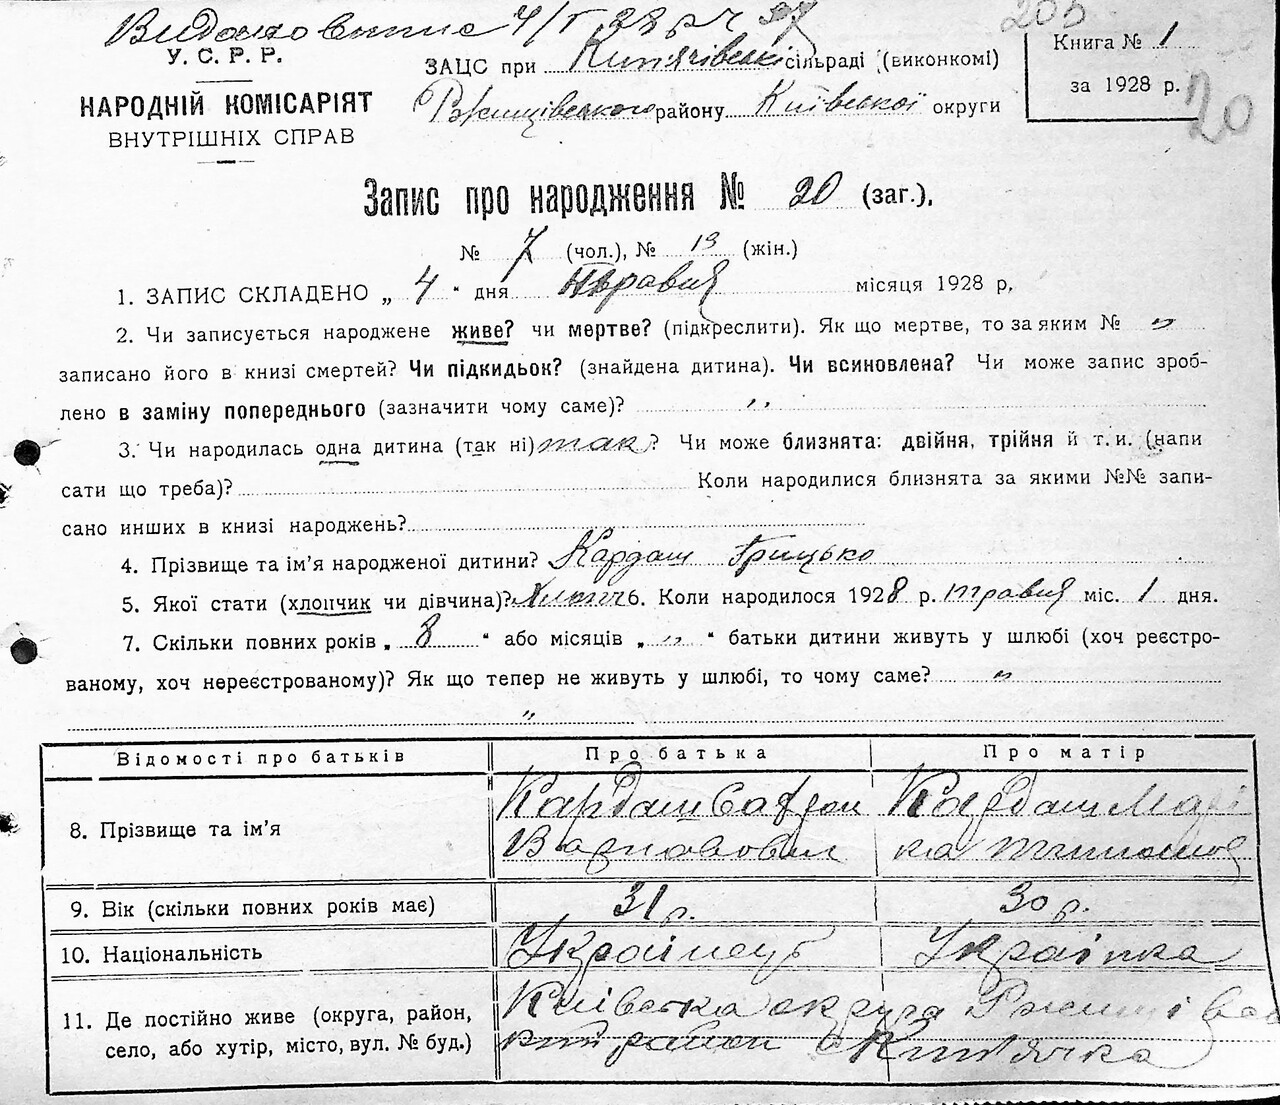 У. С. Р. Р.
НАРОДНІЙ КОМІСАРІЯТ
ВНУТРІШНІХ СПРАВ
205
ЗАЦС при Кип'ячівські сільраді (виконкомі)
Ржищівського району Київської округи
Книга № 1
за 1928 р.
20
Запис про народження № 20 (заг.),
№ 7 (чол.), № 13 (жін.)
1. ЗАПИС СКЛАДЕНО „ 4 " дня травня місяця 1928 р,
2. Чи записується народжене живе? чи мертве? (підкреслити). Як що мертве, то за яким № "
записано його в книзі смертей? Чи підкидьок? (знайдена дитина). Чи всиновлена? Чи може запис зроб-
лено в заміну попереднього (зазначити чому саме)? "
3. Чи народилась одна дитина (так ні) так? Чи може близнята: двійня, трійня й т. и. (напи
сати що треба)? Коли народилися близнята за якими №№ запи-
сано инших в книзі народжень?
4. Прізвище та ім'я народженої дитини? Кардаш Грицько
5. Якої стати (хлопчик чи дівчина)? 6. Коли народилося 1928 р. травня міс. 1 дня.
7. Скільки повних років „ 8 " або місяців „ " " батьки дитини живуть у шлюбі (хоч реєстро-
ваному, хоч нереєстрованому)? Як що тепер не живуть у шлюбі, то чому саме? "
"
Відомості про батьків Про батька Про матір
8. Прізвище та ім'я Кардаш Кардаш Марі
ка
9. Вік (скільки повних років має) 31 р. 30 р.
10. Національність Українець Українка
11. Де постійно живе (округа, район, Київська округа
село, або хутір, місто, вул. № буд.) район с Кип'ячка